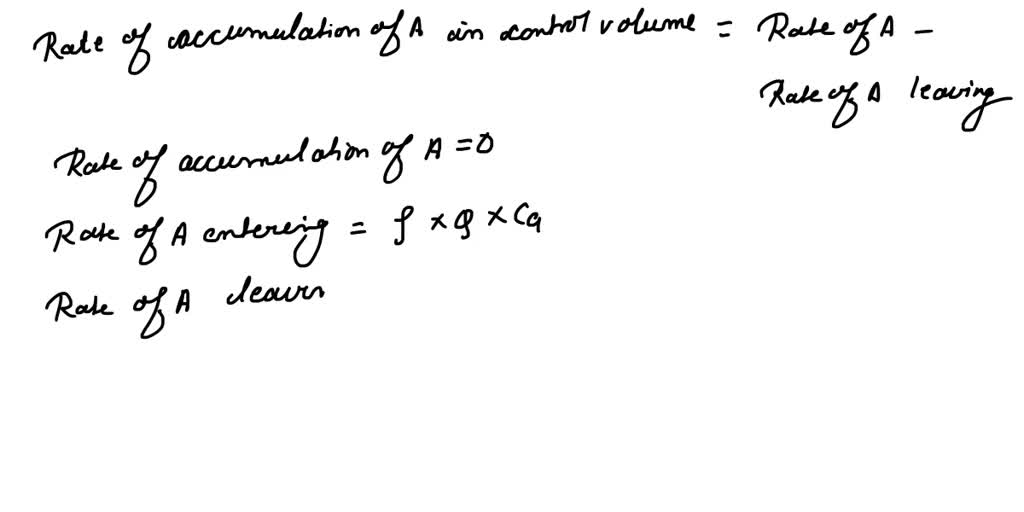 Rate of accumulation of A in control volume = Rate of A -
Rate of A leaving
Rate of accumulation of A = 0
Rate of A entering = ρ × Q × Ca
Rate of A leavin